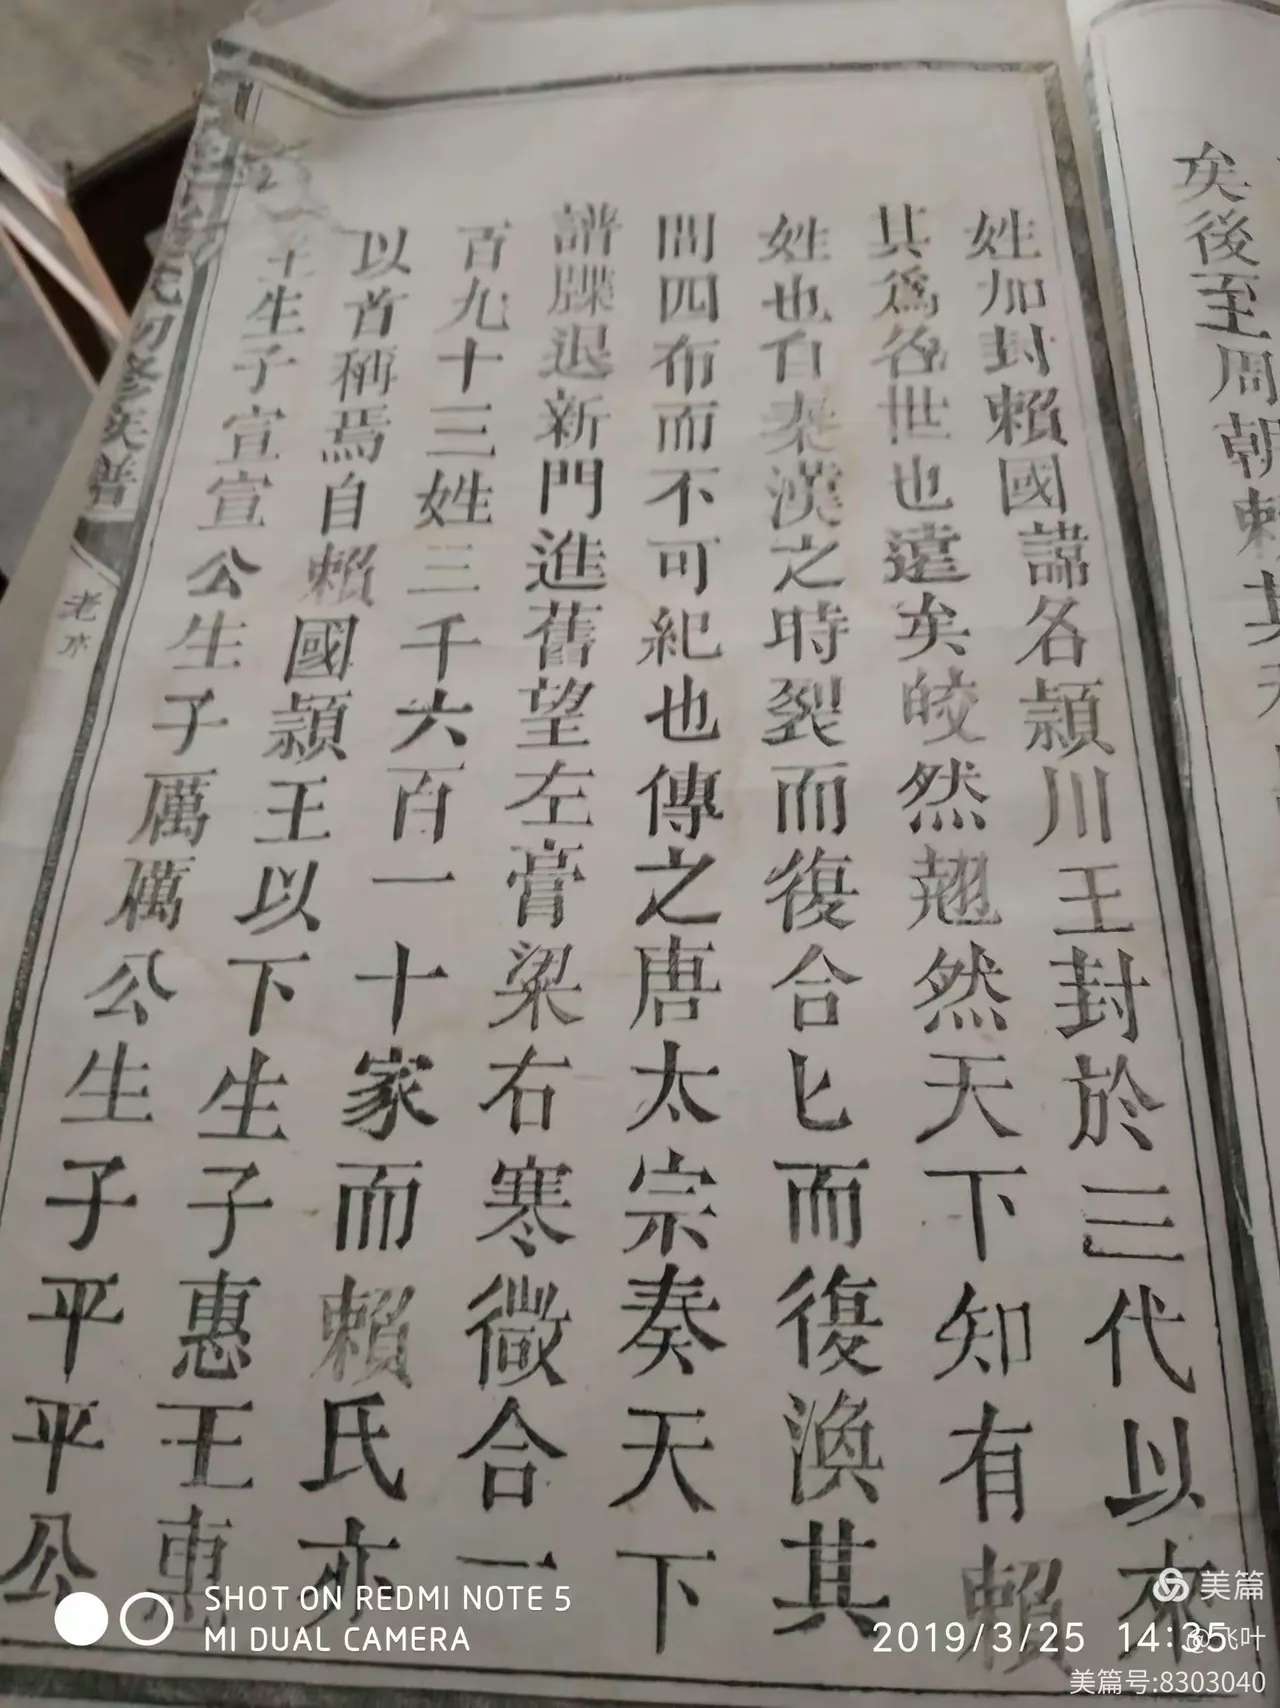 矣後至周朝賴其
姓加封賴國諱各頴川王封於三代以來
其爲各世也遠矣皎然翘然天下知有賴
姓也自秦漢之時裂而復合匕而復渙其
間四布而不可紀也傳之唐太宗奏天下
譜牒退新門進舊望左膏梁右寒微合一
百九十三姓三千六百一十家而賴氏亦
以首稱焉自賴國頴王以下生子惠王惠
王生子宣宣公生子厲厲公生子平平公
氏初修族譜
老亦
SHOT ON REDMI NOTE 5
MI DUAL CAMERA
2019/3/25 14:35
美篇
@飞叶
美篇号:8303040